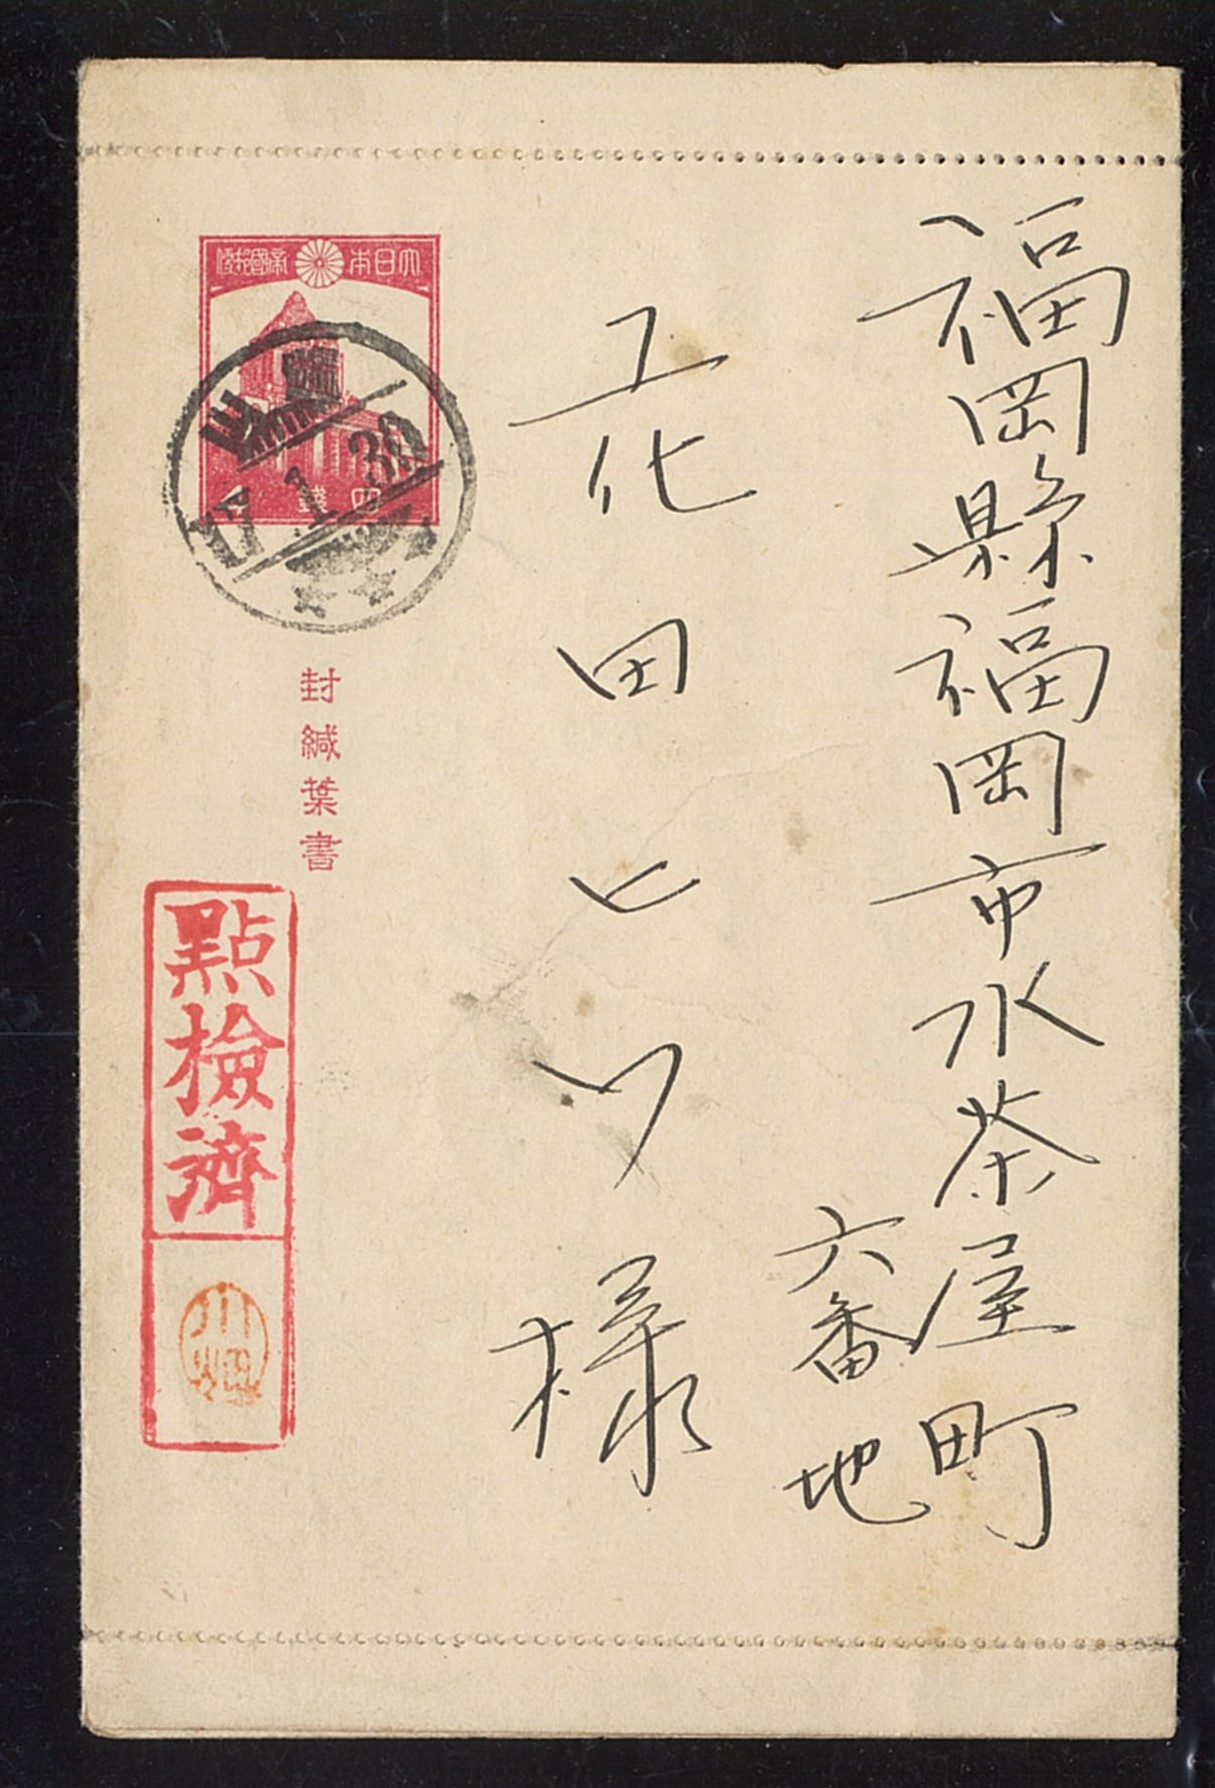 福岡縣福岡市水茶屋町
六番地
花田ヒツ様
大日本帝國郵便
四錢
17.1.30
封緘葉書
點檢濟
川畑